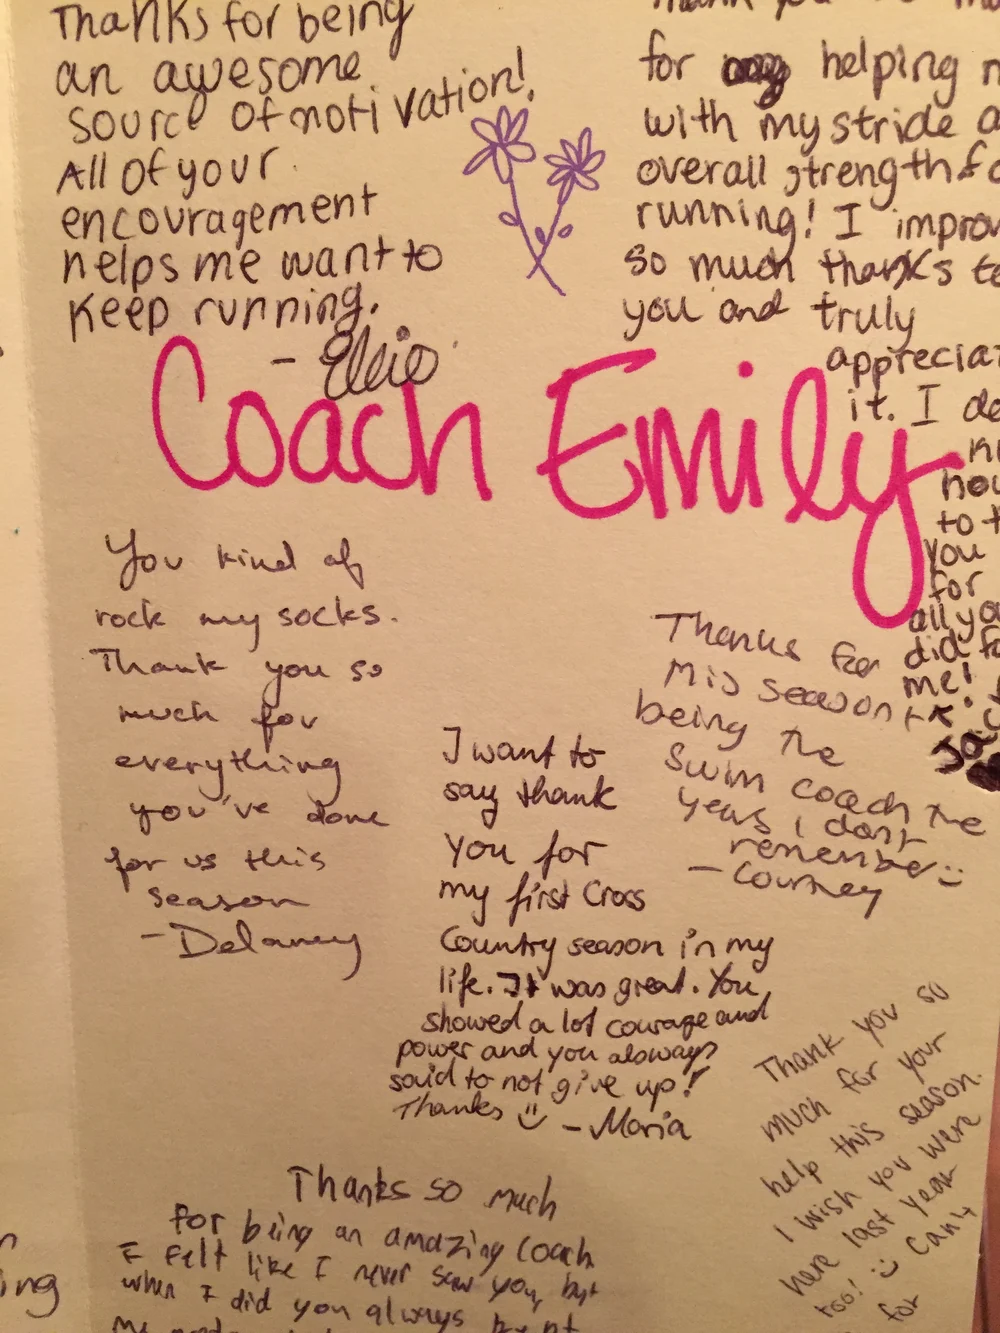 Thanks for being
an awesome
source of motivation!
All of your
encouragement
helps me want to
keep running.
- Ellie
for helping
with my stride
overall strength
running! I
so much thanks
you and truly
it. I
you
for
did
me!
Coach Emily
You kind of
rock my socks.
Thank you so
much for
everything
you've done
for us this
season
- Delaney
I want to
say thank
you for
my first Cross
Country season in my
life. It was great. You
showed a lot courage and
power and you always
said to not give up!
Thanks :) - Maria
Thanks for
Mid season +
being the
swim coach the
years I don't
remember :)
- Courtney
Thank you so
much for your
help this season.
I wish you were
here last year
too! :)
for
Thanks so much
for being an amazing coach
I felt like I never saw you, but
when I did you always
ing